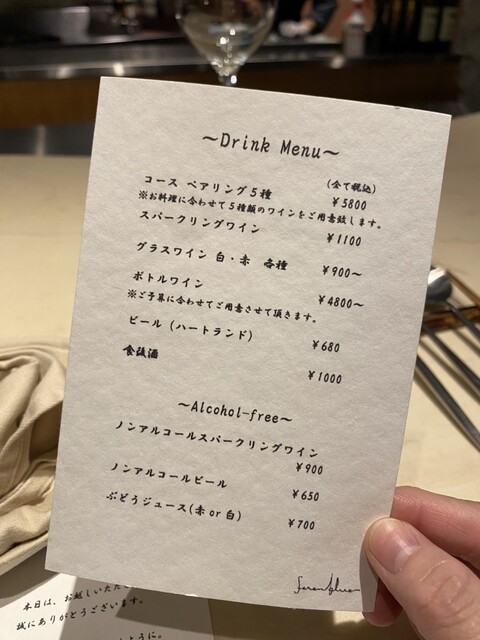 ～Drink Menu～
(全て税込)
コース ペアリング５種 ￥5800
※お料理に合わせて５種類のワインをご用意致します。
スパークリングワイン ￥1100
グラスワイン 白・赤 各種 ￥900～
ボトルワイン ￥4800～
※ご予算に合わせてご用意させて頂きます。
ビール (ハートランド) ￥680
食後酒 ￥1000
～Alcohol-free～
ノンアルコールスパークリングワイン
￥900
ノンアルコールビール ￥650
ぶどうジュース(赤 or 白) ￥700
本日は、お越しいただ
誠にありがとうございます。